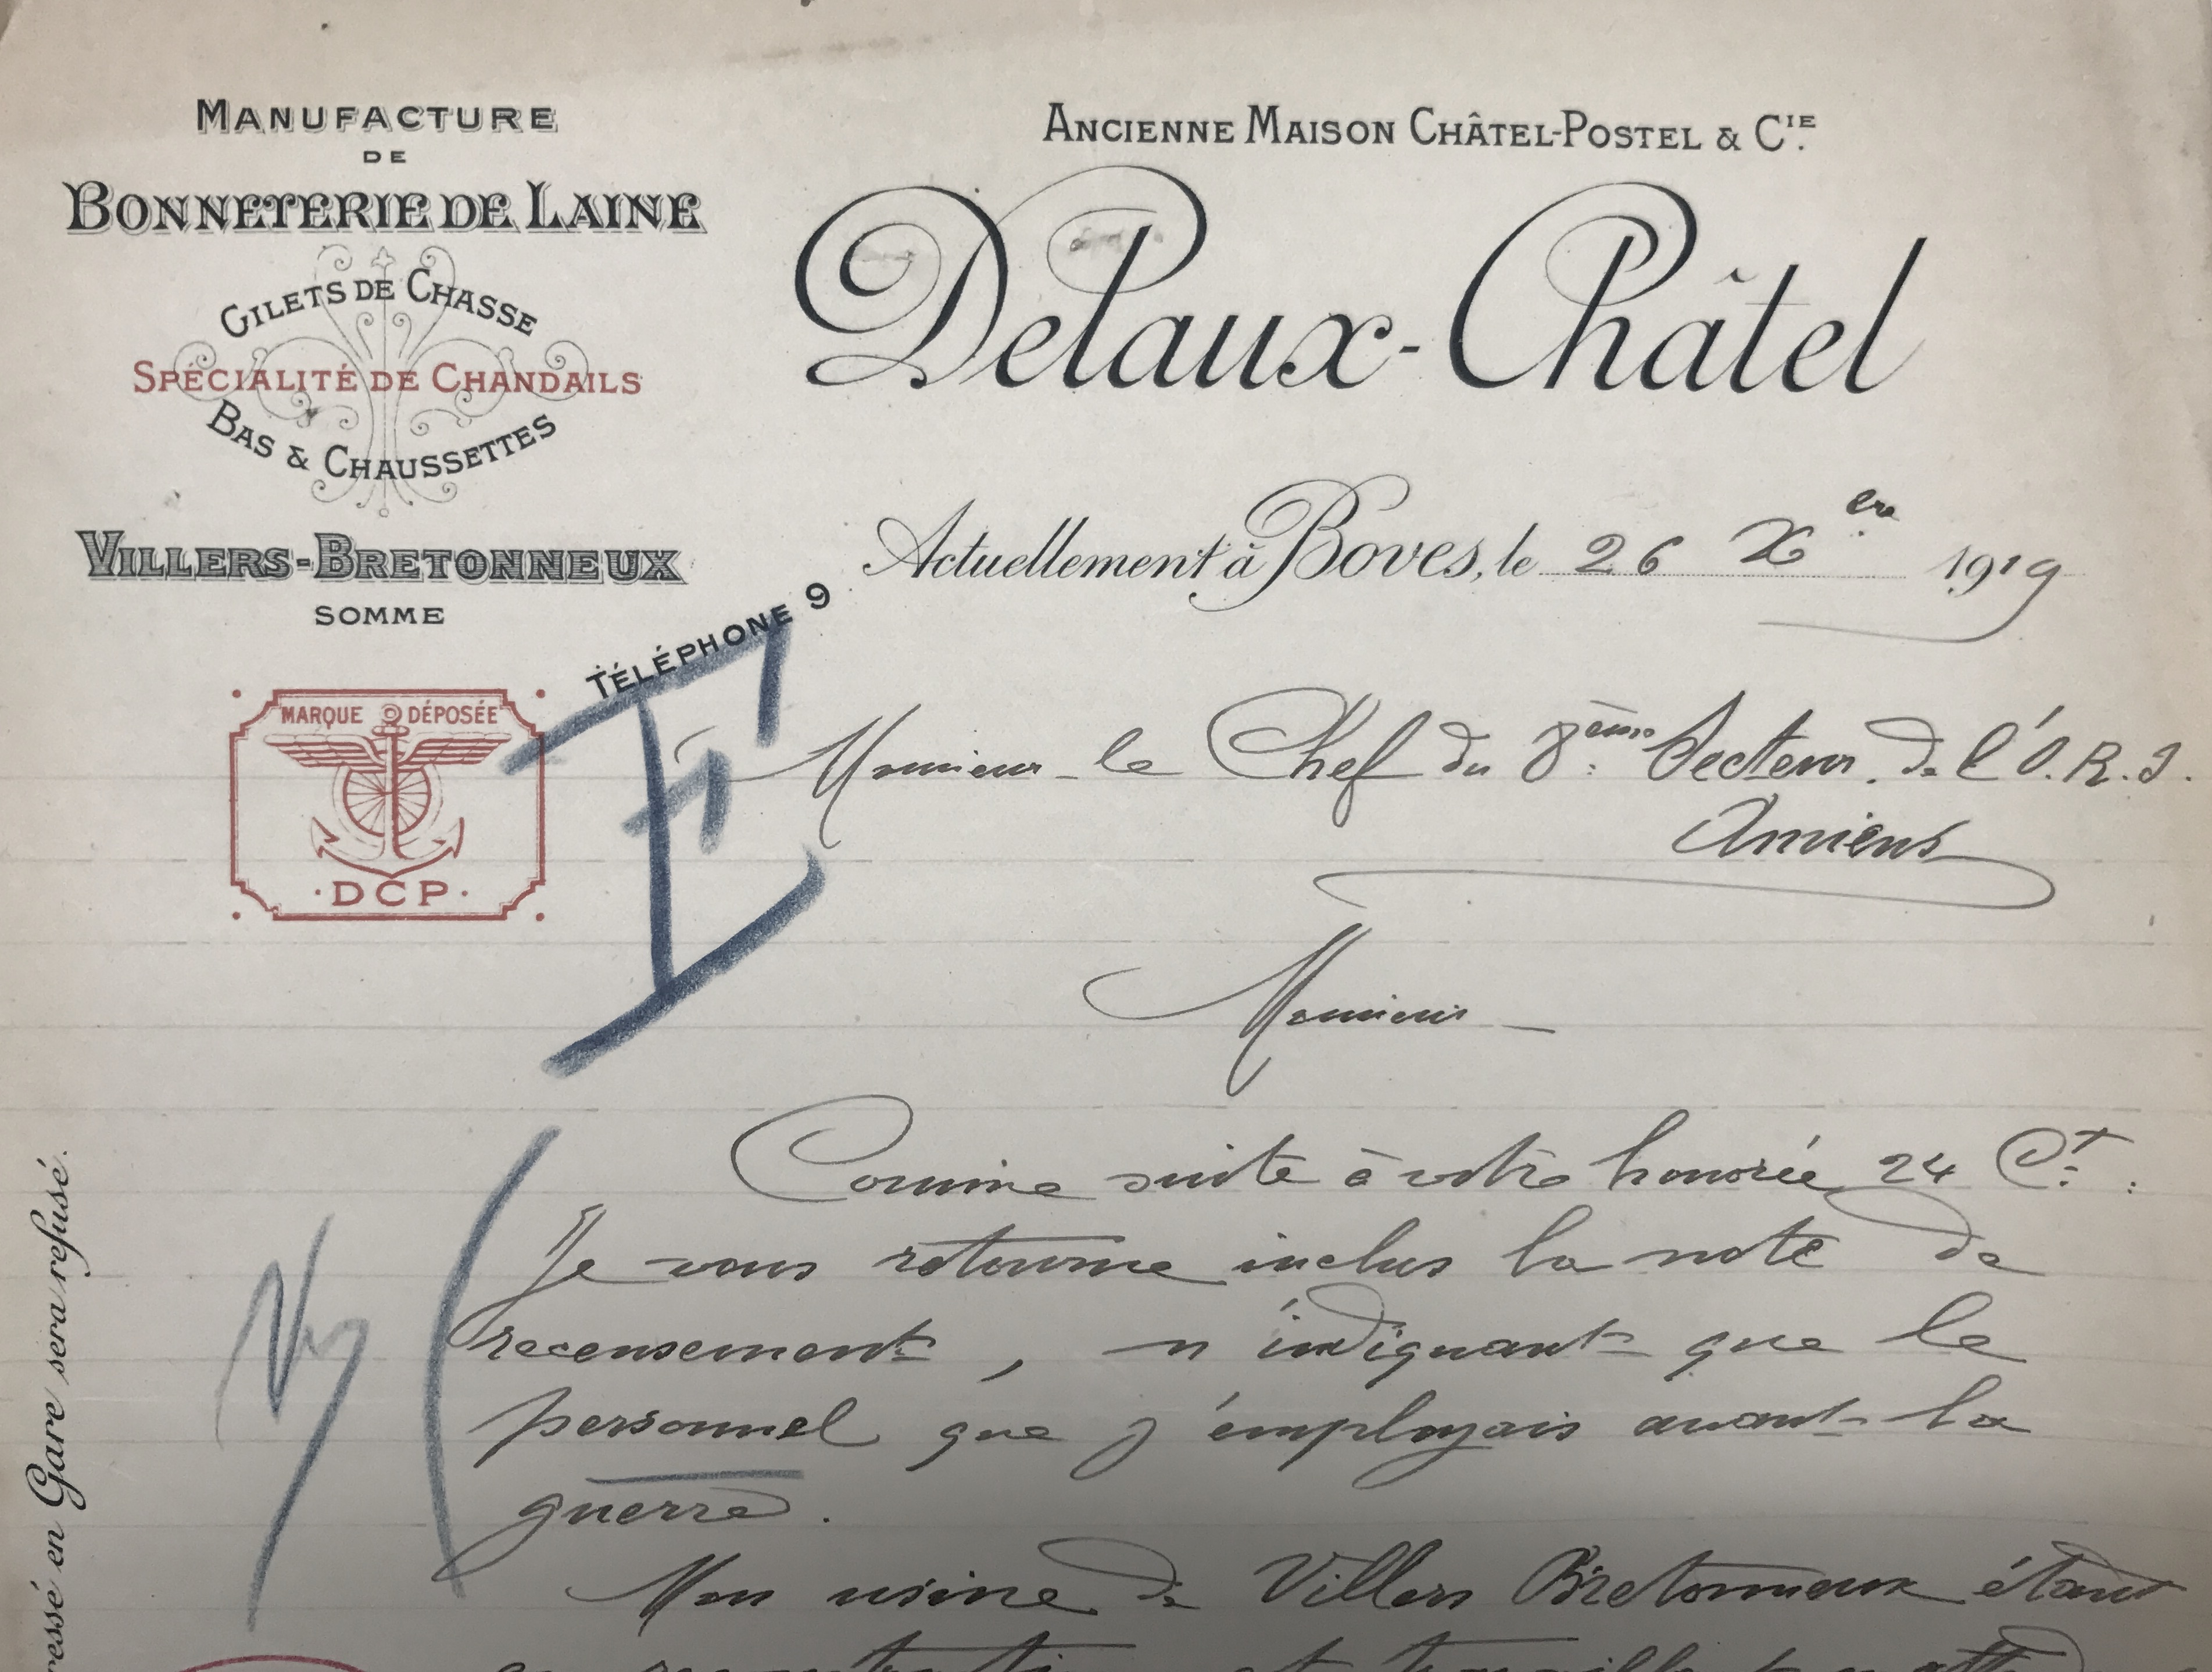 MANUFACTURE
DE
BONNETERIE DE LAINE
GILETS DE CHASSE
SPÉCIALITÉ DE CHANDAILS
BAS & CHAUSSETTES
VILLERS-BRETONNEUX
SOMME
TÉLÉPHONE 9
MARQUE DÉPOSÉE
·DCP·
ANCIENNE MAISON CHÂTEL-POSTEL & CIE.
Delaux-Châtel
Actuellement à Boves, le 26 Xbre 1919
Monsieur le Chef du 8ème Secteur de l'O.R.I.
Amiens
Monsieur
Comme suite à votre honorée 24 Ct :
Je vous retourne inclus la note de
recensement, n'indiquant que le
personnel que j'employais avant la
guerre.
Mon usine de Villers Bretonneux étant
en reconstruction et
en Gare sera refusé.